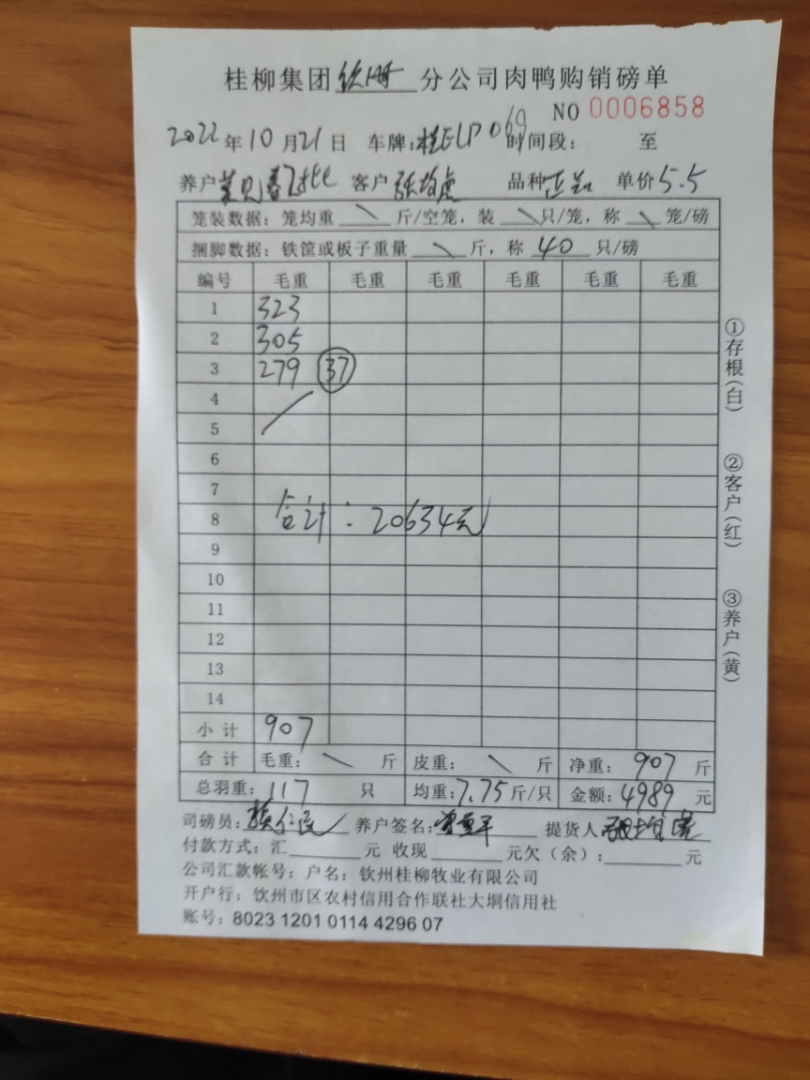 桂柳集团钦州分公司肉鸭购销磅单
NO 0006858
2022年10月21日 车牌:桂ELP069 时间段: 至
养户 客户 张培虎 品种 正品 单价5.5
笼装数据: 笼均重 \ 斤/空笼, 装 \ 只/笼, 称 \ 笼/磅
捆脚数据: 铁筐或板子重量 \ 斤, 称 40 只/磅
编号 毛重 毛重 毛重 毛重 毛重 毛重
1 323
2 305
3 279 37
4
5
6
7
8 合计:20634元
9
10
11
12
13
14
小计 907
合计 毛重: \ 斤 皮重: \ 斤 净重: 907 斤
总羽重: 117 只 均重:7.75斤/只 金额:4989 元
司磅员: 养户签名: 提货人
付款方式: 汇 元 收现 元欠(余): 元
公司汇款帐号: 户名: 钦州桂柳牧业有限公司
开户行: 钦州市区农村信用合作联社大垌信用社
账号: 8023 1201 0114 4296 07
①存根(白)
②客户(红)
③养户(黄)